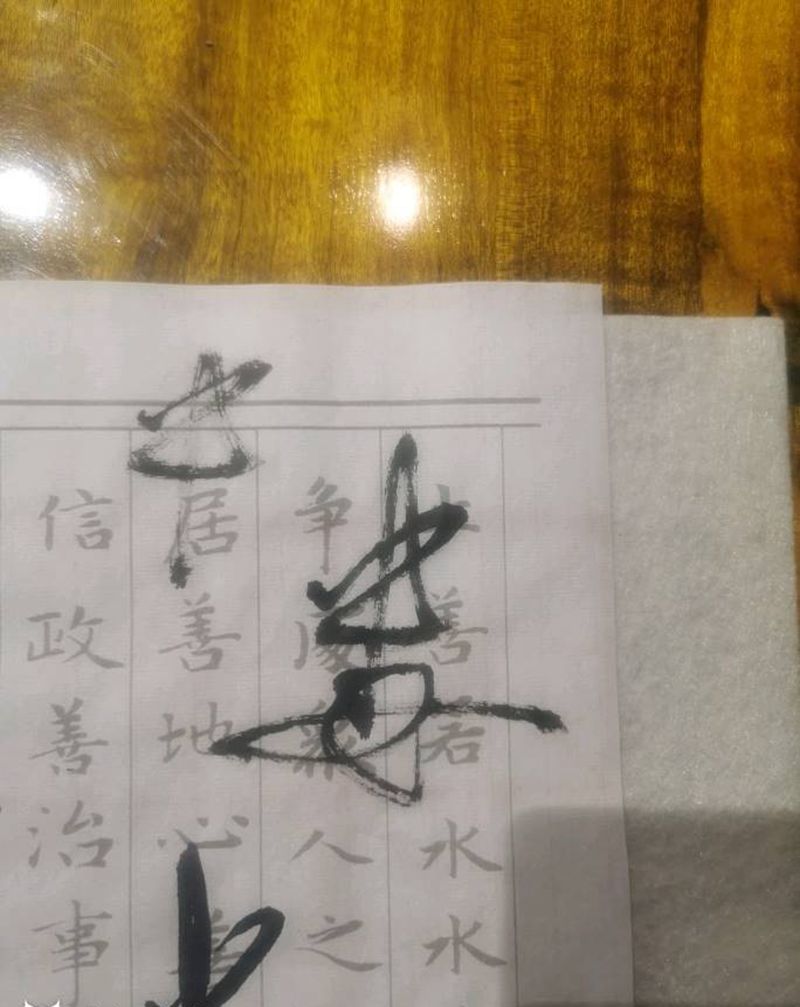 上善若水水
争處衆人之
居善地心善
信政善治事